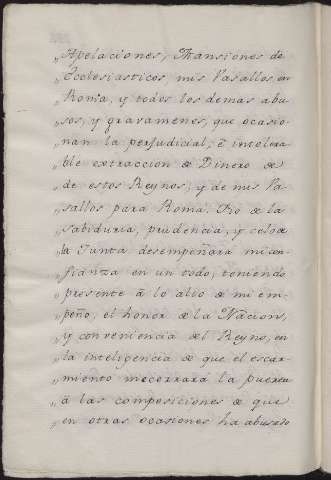 „Apelaciones, Mansiones de
„Ecclesiasticos mis Vasallos en
„Roma, y todos los demas abu-
„sos, y gravamenes, que ocasio-
„nan la perjudicial, è intolera-
„ble extraccion de Dinero de
„de estos Reynos, y de mis Va-
„sallos para Roma. Fio de la
„sabiduria, prudencia, y celo de
„la Junta desempeñarà mi con-
„fianza en un todo, teniendo
„presente à lo alto de mi em-
„peño, el honor de la Nacion,
„y conveniencia del Reyno, en
„la inteligencia de que el escar-
„miento me cerrarà la puerta
„à las composiciones de que
„en otras ocasiones ha abusado